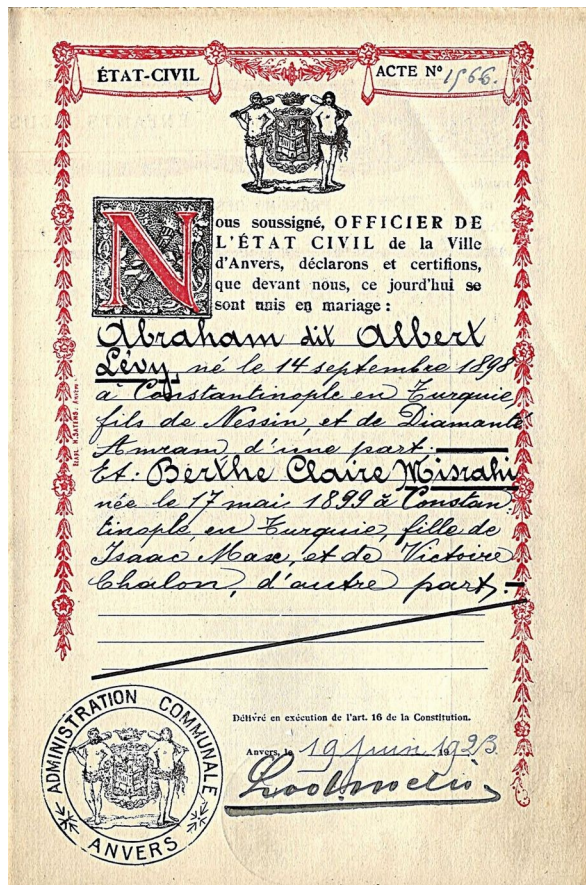 ÉTAT-CIVIL
ACTE Nº 1566.
Nous soussigné, OFFICIER DE
L'ÉTAT CIVIL de la Ville
d'Anvers, déclarons et certifions,
que devant nous, ce jourd'hui se
sont unis en mariage :
Abraham dit Albert
Lévy, né le 14 septembre 1898
à Constantinople en Turquie,
fils de Nessin, et de Diamante
Amram, d'une part.
Et. Berthe Claire Misrahi
née le 17 mai 1899 à Constan-
tinople, en Turquie, fille de
Isaac Max, et de Victoire
Chalon, d'autre part.
Délivré en exécution de l'art. 16 de la Constitution.
Anvers, le 19 Juin 1923.
ADMINISTRATION COMMUNALE
ANVERS